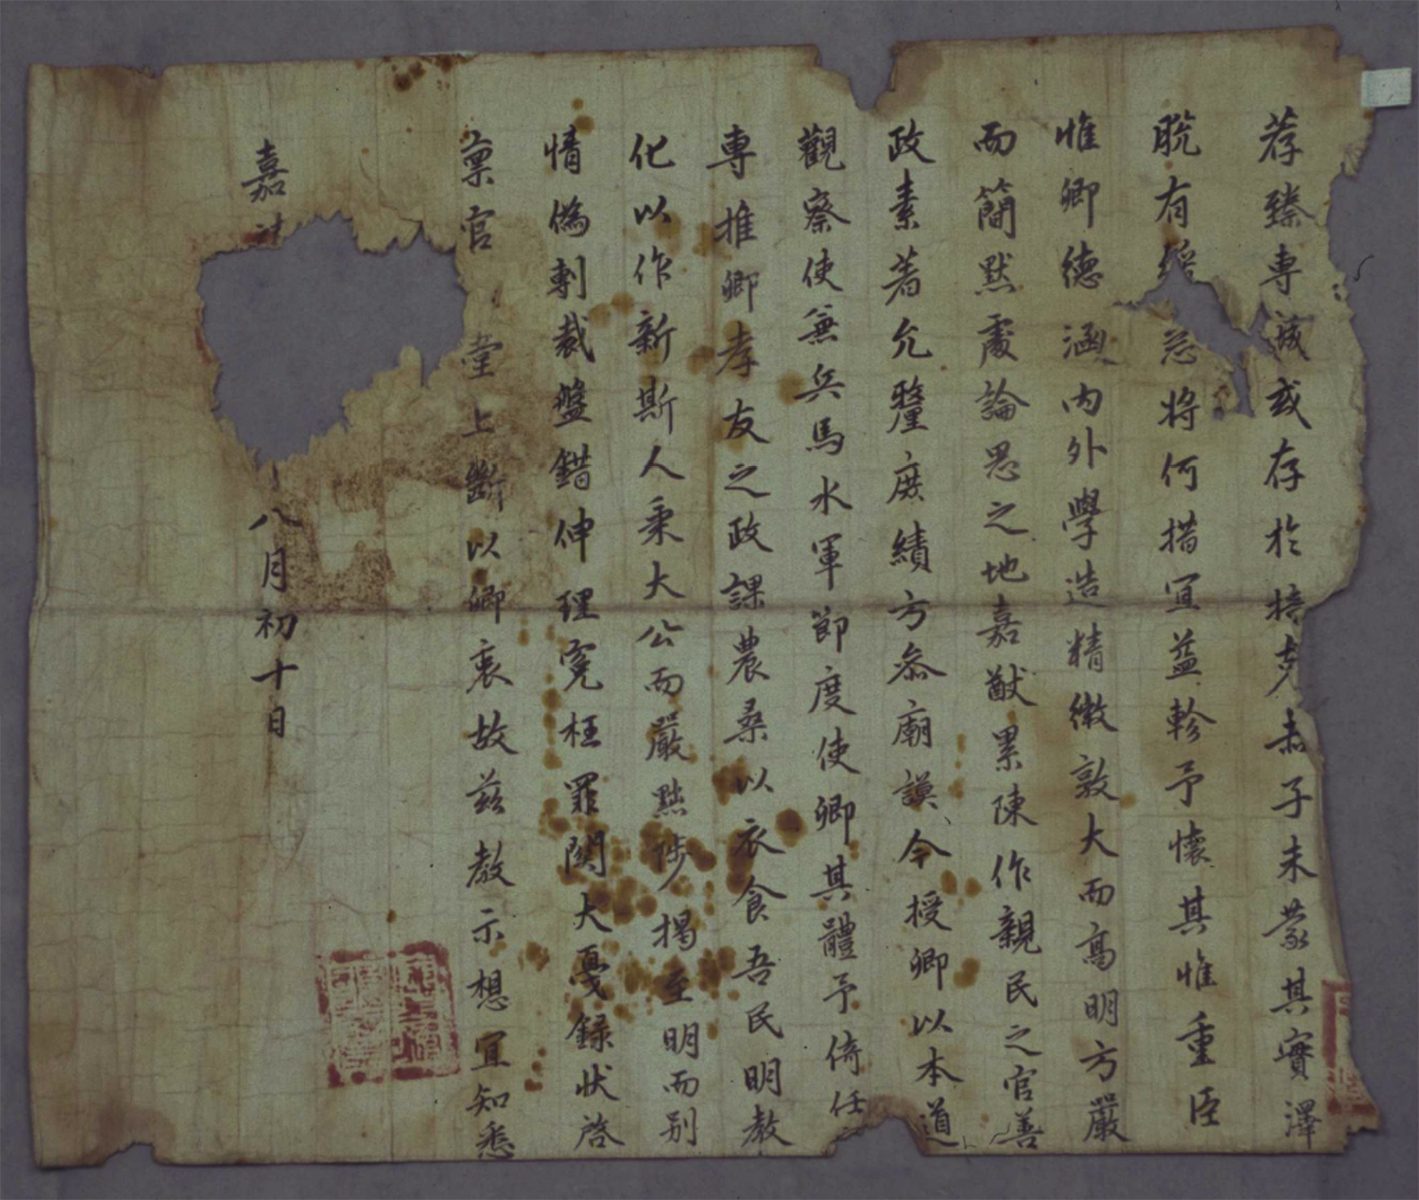 荐臻專誠或存於掊克赤子未蒙其實澤
脫有忿將何措宜益軫予懷其惟重臣
惟卿德涵內外學造精微敦大而高明方嚴
而簡默處論思之地嘉猷累陳作親民之官善
政素著允釐庶績方參廟謨今授卿以本道
觀察使兼兵馬水軍節度使卿其體予倚任
專推卿孝友之政課農桑以衣食吾民明敎
化以作新斯人秉大公而嚴黜陟揭至明而别
情僞剸裁盤錯伸理冤枉罪関大戛錄狀啓
禀官堂上斷以卿衷故玆敎示想宜知悉
嘉八月初十日